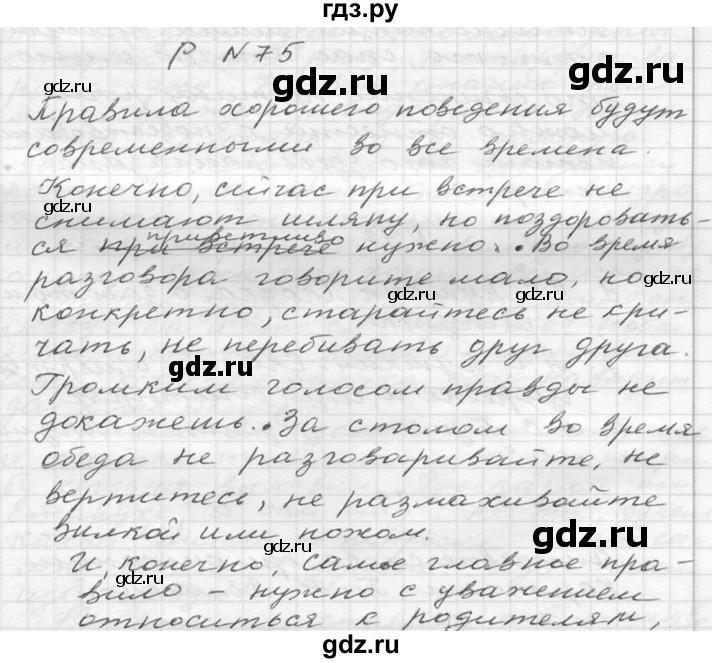 гдз.ру
Р N 75
gdz.ru gdz.ru gdz.ru
Правила хорошего поведения будут
gdz.ru gdz.ru
современными во все времена.
Конечно, сейчас при встрече не
gdz.ru
снимают шляпу, но поздоровать-
приветливо
ся при встрече нужно. Во время
разговора говорите мало, но
gdz.ru gdz.ru gdz.ru
конкретно, старайтесь не кри-
чать, не перебивать друг друга.
gdz.ru gdz.ru
Громким голосом правды не
докажешь. За столом во время
обеда не разговаривайте, не
вертитесь, не размахивайте
вилкой или ножом.
gdz.ru gdz.ru
И, конечно, самое главное пра-
gdz.ru
вило – нужно с уважением
gdz.ru
относиться к родителям,
gdz.ru